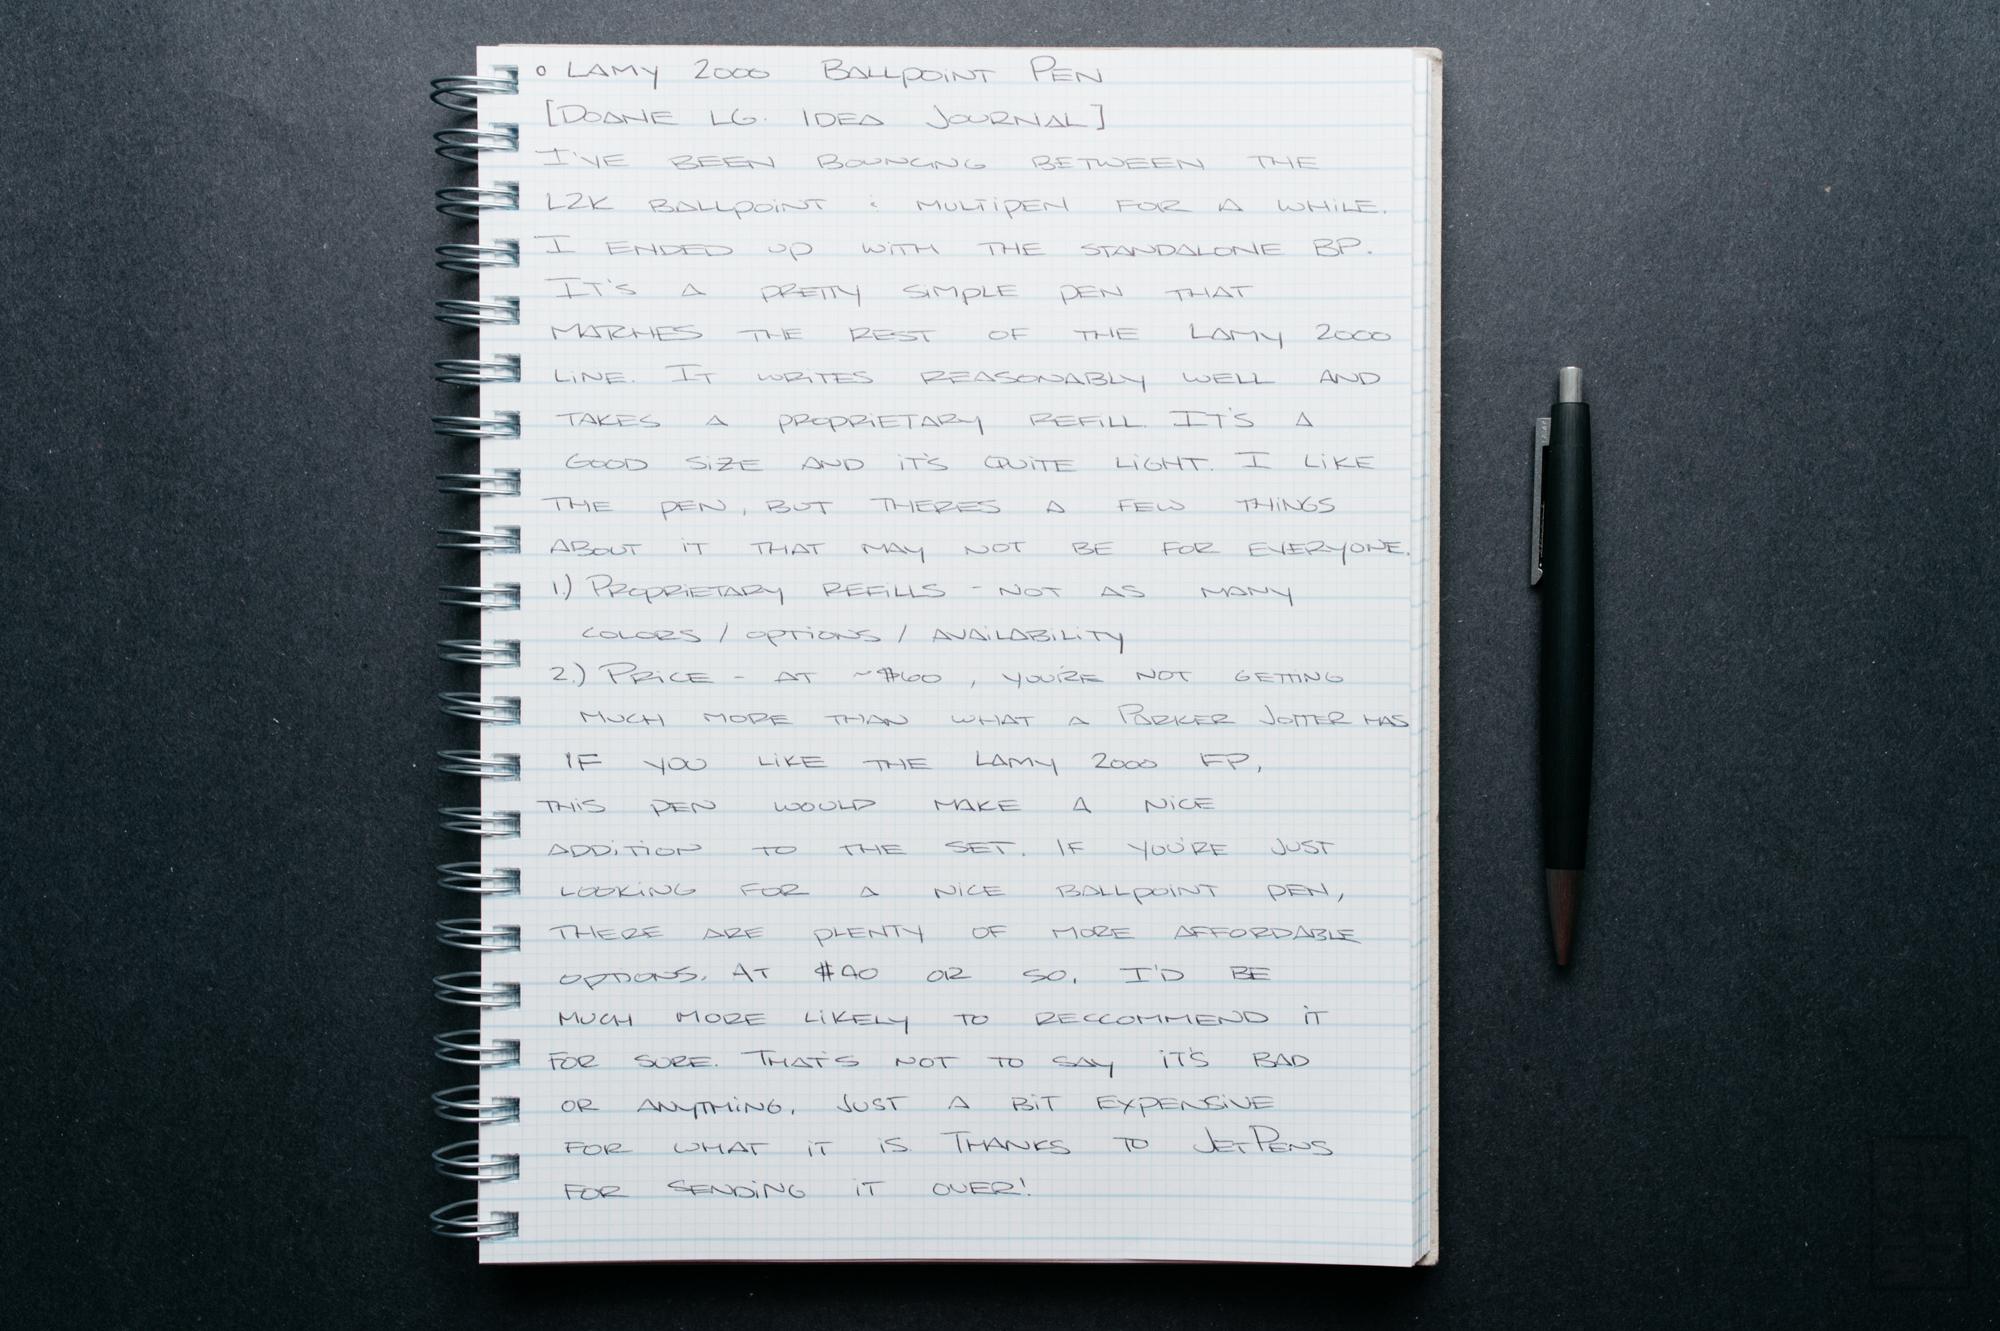 o LAMY 2000 BALLPOINT PEN
[DOANE LG. IDEA JOURNAL]
I'VE BEEN BOUNCING BETWEEN THE
L2K BALLPOINT & MULTIPEN FOR A WHILE.
I ENDED UP WITH THE STANDALONE BP.
IT'S A PRETTY SIMPLE PEN THAT
MATCHES THE REST OF THE LAMY 2000
LINE. IT WRITES REASONABLY WELL AND
TAKES A PROPRIETARY REFILL. IT'S A
GOOD SIZE AND IT'S QUITE LIGHT. I LIKE
THE PEN, BUT THERES A FEW THINGS
ABOUT IT THAT MAY NOT BE FOR EVERYONE.
1.) PROPRIETARY REFILLS - NOT AS MANY
COLORS / OPTIONS / AVAILABILITY
2.) PRICE - AT ~$60, YOU'RE NOT GETTING
MUCH MORE THAN WHAT A PARKER JOTTER HAS
IF YOU LIKE THE LAMY 2000 FP,
THIS PEN WOULD MAKE A NICE
ADDITION TO THE SET. IF YOU'RE JUST
LOOKING FOR A NICE BALLPOINT PEN,
THERE ARE PLENTY OF MORE AFFORDABLE
OPTIONS. AT $40 OR SO, I'D BE
MUCH MORE LIKELY TO RECCOMMEND IT
FOR SURE. THAT'S NOT TO SAY IT'S BAD
OR ANYTHING, JUST A BIT EXPENSIVE
FOR WHAT IT IS. THANKS TO JETPENS
FOR SENDING IT OVER!